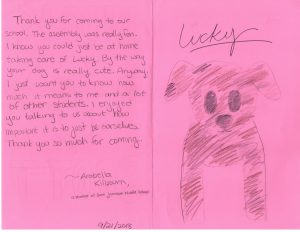 Thank you for coming to our
school. The assembly was really fun.
I know you could just be at home
taking care of Lucky. By the way
your dog is really cute. Anyway,
I just want you to know how
much it means to me and a lot
of other students. I enjoyed
you talking to us about how
important it is to just be ourselves.
Thank you so much for coming.
~Arabella
Kilbourn,
a student at
Middle School
9/21/2013
Lucky